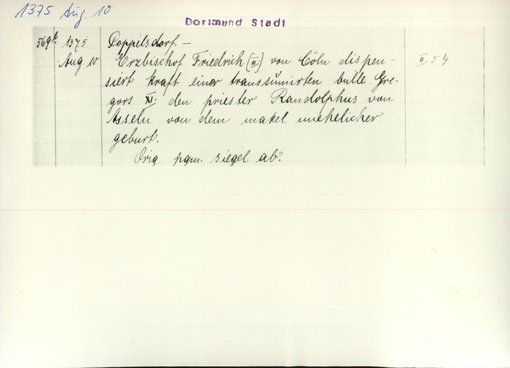 1375 Aug. 10
Dortmund Stadt
569a 1375 Doppelsdorf. –
Aug 10 Erzbischof Friedrich [III] von Cöln dispen- II. 54
siert kraft einer transsumirten bulle Gre-
gors XI. den priester Randolphus von
Asseln von dem makel unehelicher
geburt.
Orig. pgm. siegel ab.